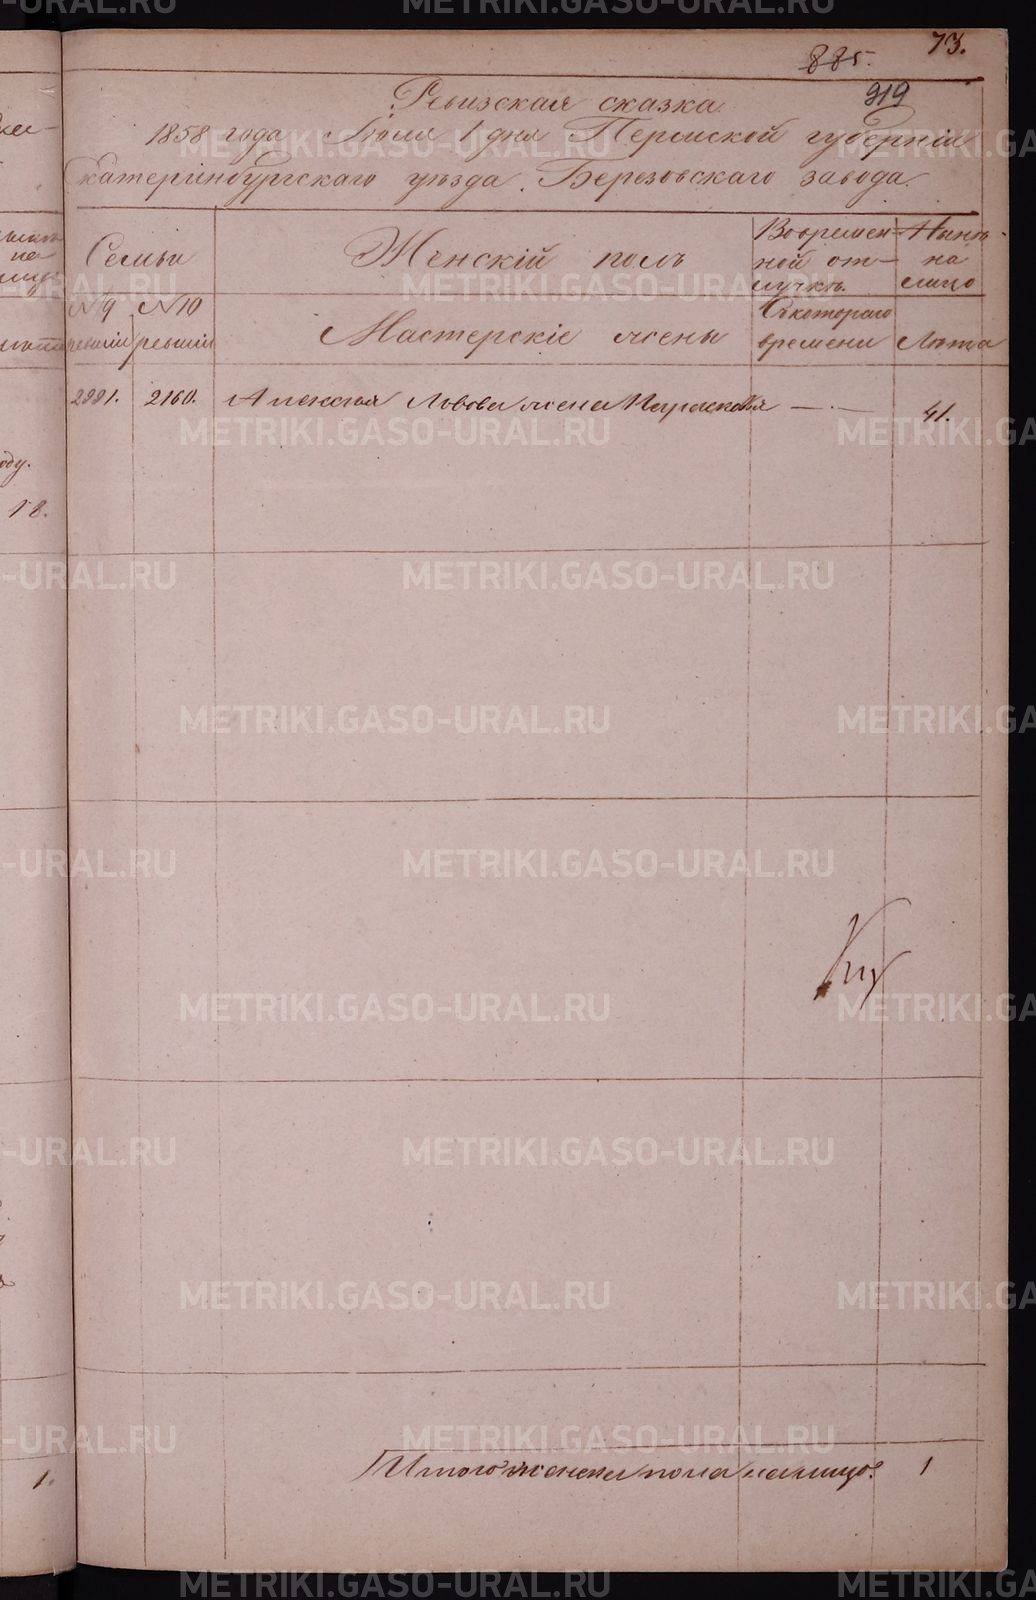 73.
885.
919
Ревизская сказка
1858 года Июля 1 дня Пермской губернии
Екатеринбургскаго уезда. Березовскаго завода.
Семьи
Женскій полъ
Во времен-
ной от-
лучкѣ.
Нынѣ
на
лицо
№ 9
ревизіи
№ 10
ревизіи
Мастерскіе жены
Съ котораго
времени
Лѣта
2991. 2160. Алексея Львова жена Парасковья — . — 41.
Итого женска пола на лицо. 1
оду.
18.
1.
METRIKI.GASO-URAL.RU